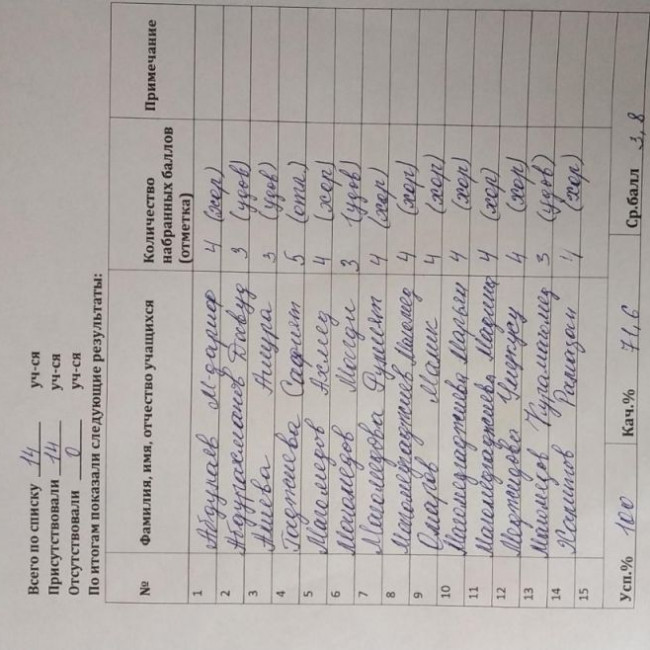 Всего по списку 14 уч-ся
Присутствовали 14 уч-ся
Отсутствовали 0 уч-ся
По итогам показали следующие результаты:
№ Фамилия, имя, отчество учащихся Количество набранных баллов (отметка) Примечание
1 Абдулаев М-дариф 4 (хор)
2 Абдурахманов Давуд 3 (удов)
3 Алиева Анура 3 (удов)
4 Гаджиева Сафият 5 (отл.)
5 Магомедов Ахмед 4 (хор)
6 Магомедов Магди 3 (удов)
7 Магомедова 4 (хор)
8 Магомедгаджиев Магомед 4 (хор)
9 Омаров Малик 4 (хор)
10 Магомедгаджиева Марьям 4 (хор)
11 Магомедгаджиева Мадина 4 (хор)
12 Маджидова 4 (хор)
13 Магомедов Курамагомед 3 (удов)
14 Халитов Рамазан 4 (хор)
15
Усп.% 100 Кач.% 71,6 Ср.балл 3,8